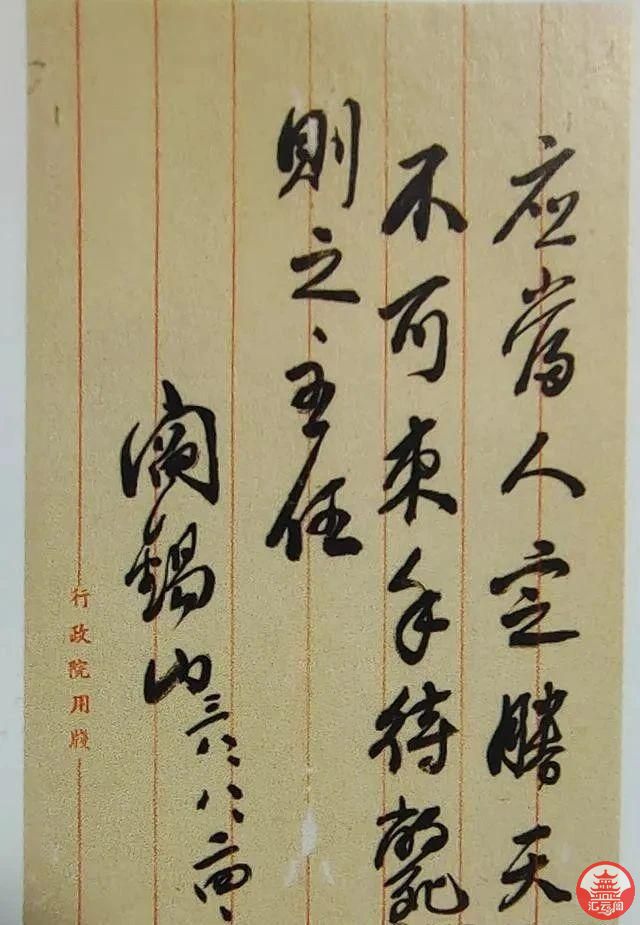 应当人定勝天
不可束手待斃
則之主任
閻錫山三八、八、廿四、
行政院用牋
汇云阁